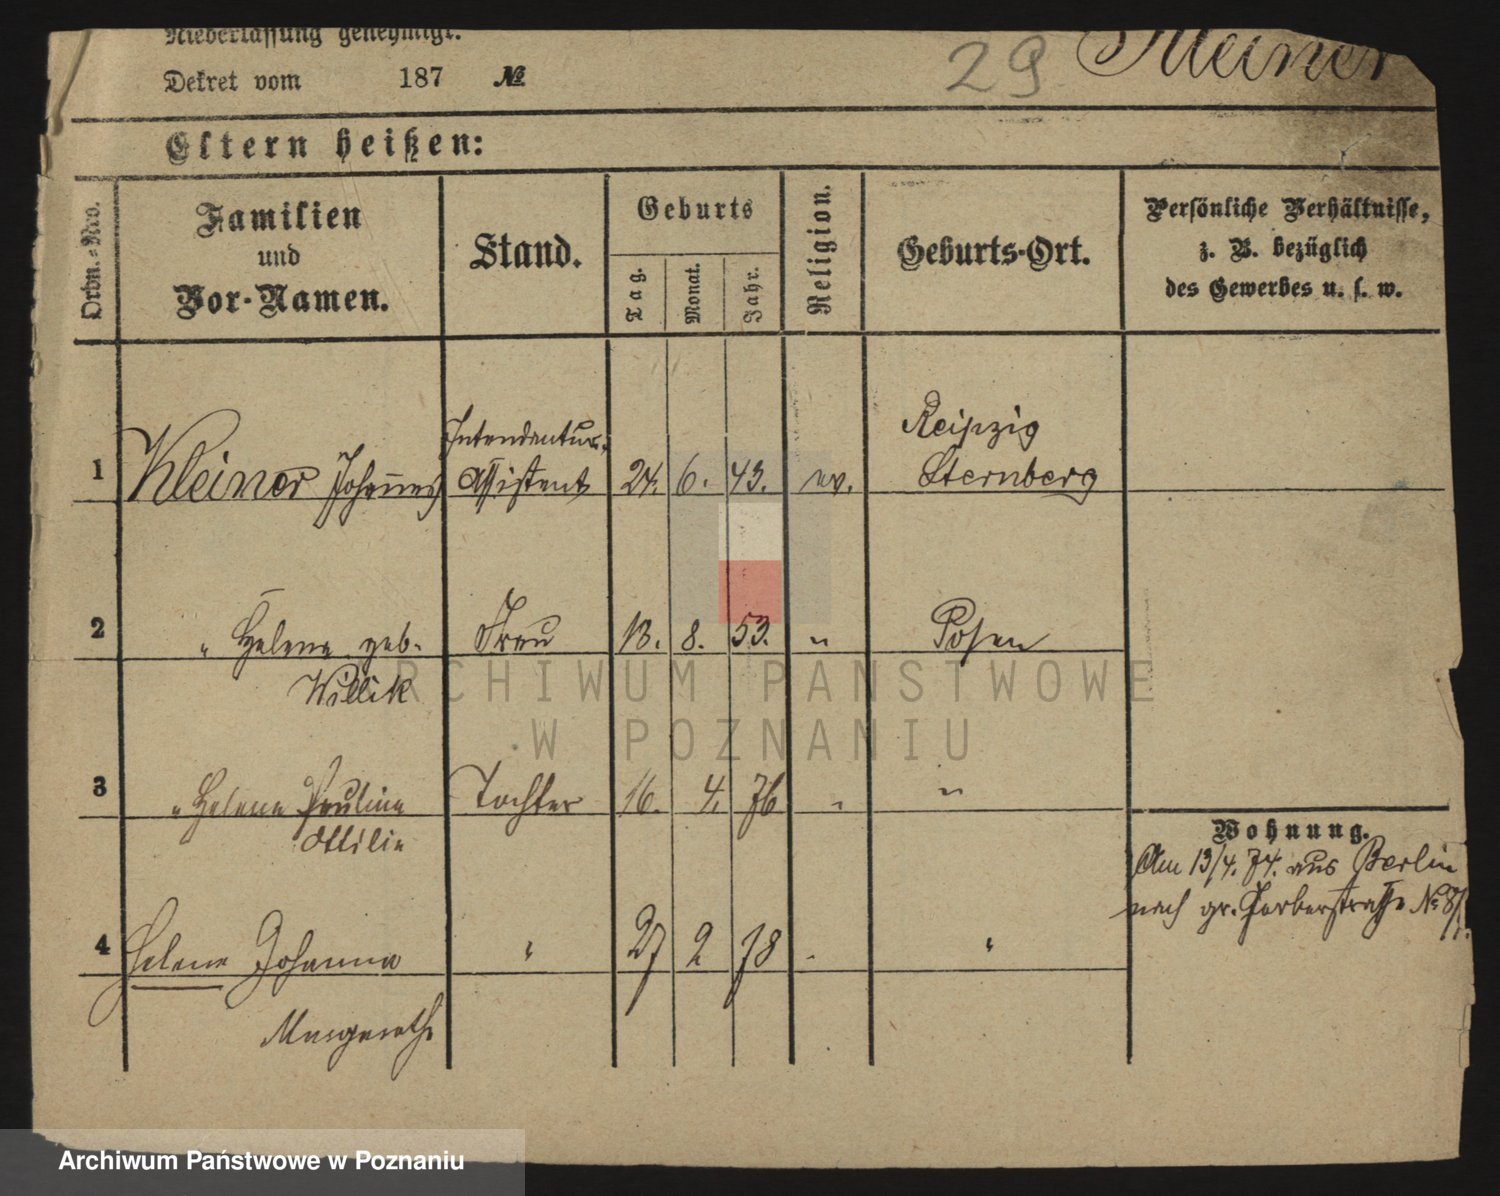 Niederlassung genehmigt.
Dekret vom 187 №
29 Kleiner
Eltern heißen:
Ordn.-Nro.
Familien
und
Vor-Namen.
Stand.
Geburts
Tag.
Monat.
Jahr.
Religion.
Geburts-Ort.
Persönliche Verhältnisse,
z. B. bezüglich
des Gewerbes u. s. w.
Intendantur- Reipzig
1 Kleiner Johannes Assistent 24. 6. 43. ev. Sternberg
2 " Helene geb. Frau 13. 8. 53. " Posen
Willik
3 " Helene Pauline Tochter 16. 4. 76 " "
Ottilie
Wohnung.
Am 13/4. 74. aus Berlin
nach gr. Gerberstraße No 8/
4 Helene Johanna " 27 2 78 "
Margarethe
ARCHIWUM PAŃSTWOWE
W POZNANIU
Archiwum Państwowe w Poznaniu